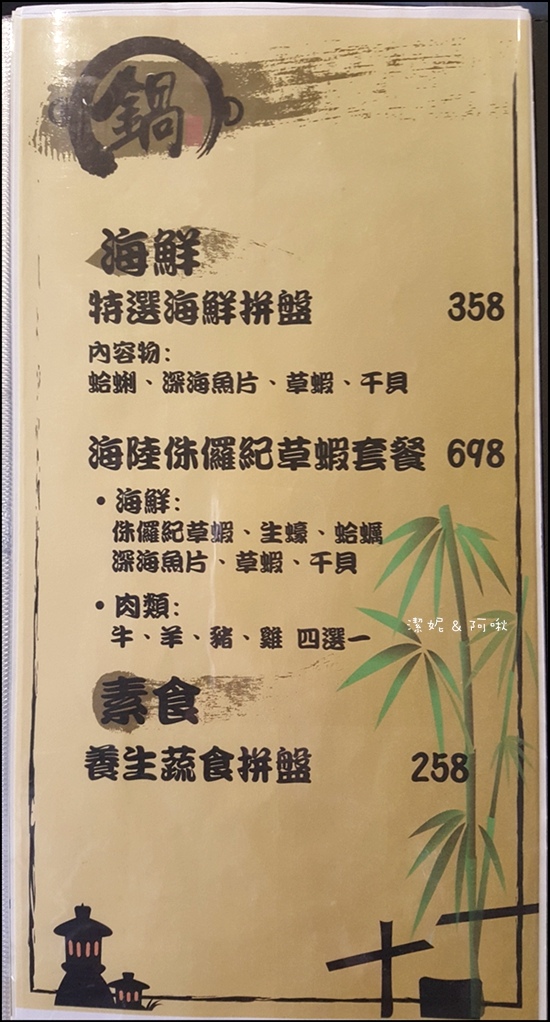 鍋
海鮮
特選海鮮拼盤 358
內容物：
蛤蜊、深海魚片、草蝦、干貝
海陸侏儸紀草蝦套餐 698
• 海鮮：
侏儸紀草蝦、生蠔、蛤蠣
深海魚片、草蝦、干貝
• 肉類：
牛、羊、豬、雞 四選一
潔妮 & 阿啾
素食
養生蔬食拼盤 258